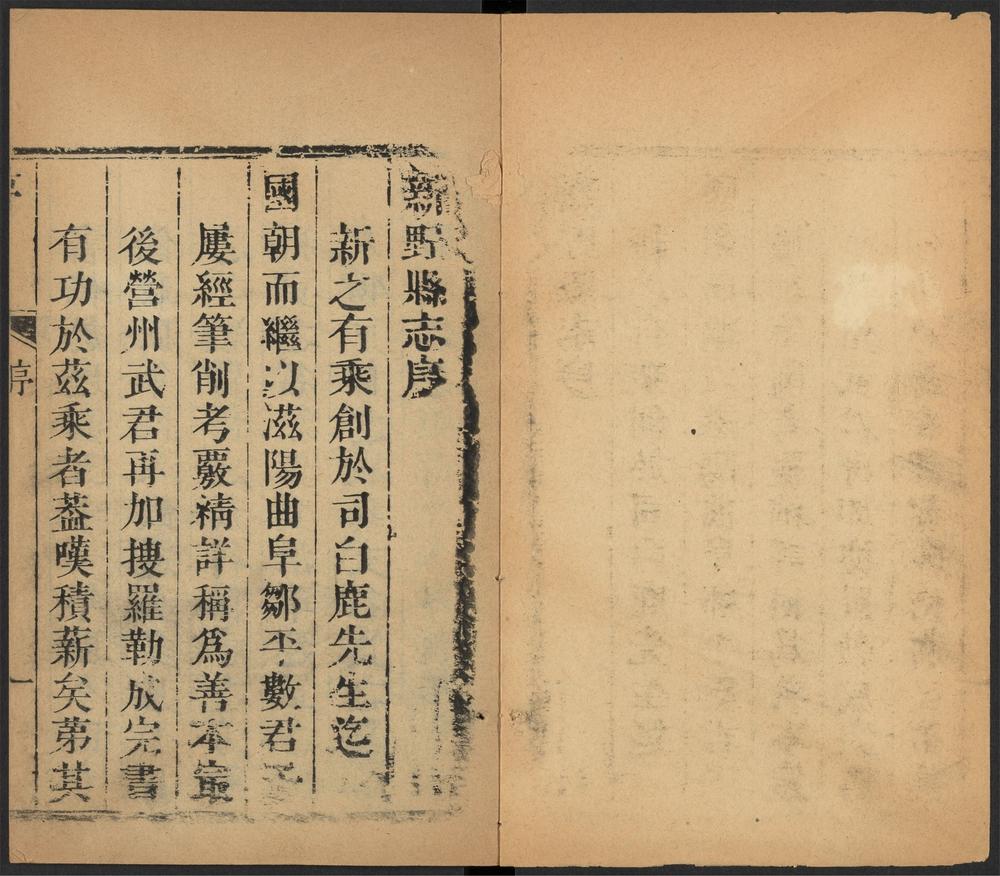 新野縣志序
新之有乘創於司白鹿先生迄
國朝而繼以滋陽曲阜鄒平數君子
屢經筆削考覈精詳稱爲善本最
後營州武君再加搜羅勒成完書
有功於茲乘者葢嘆積薪矣第其
序
一